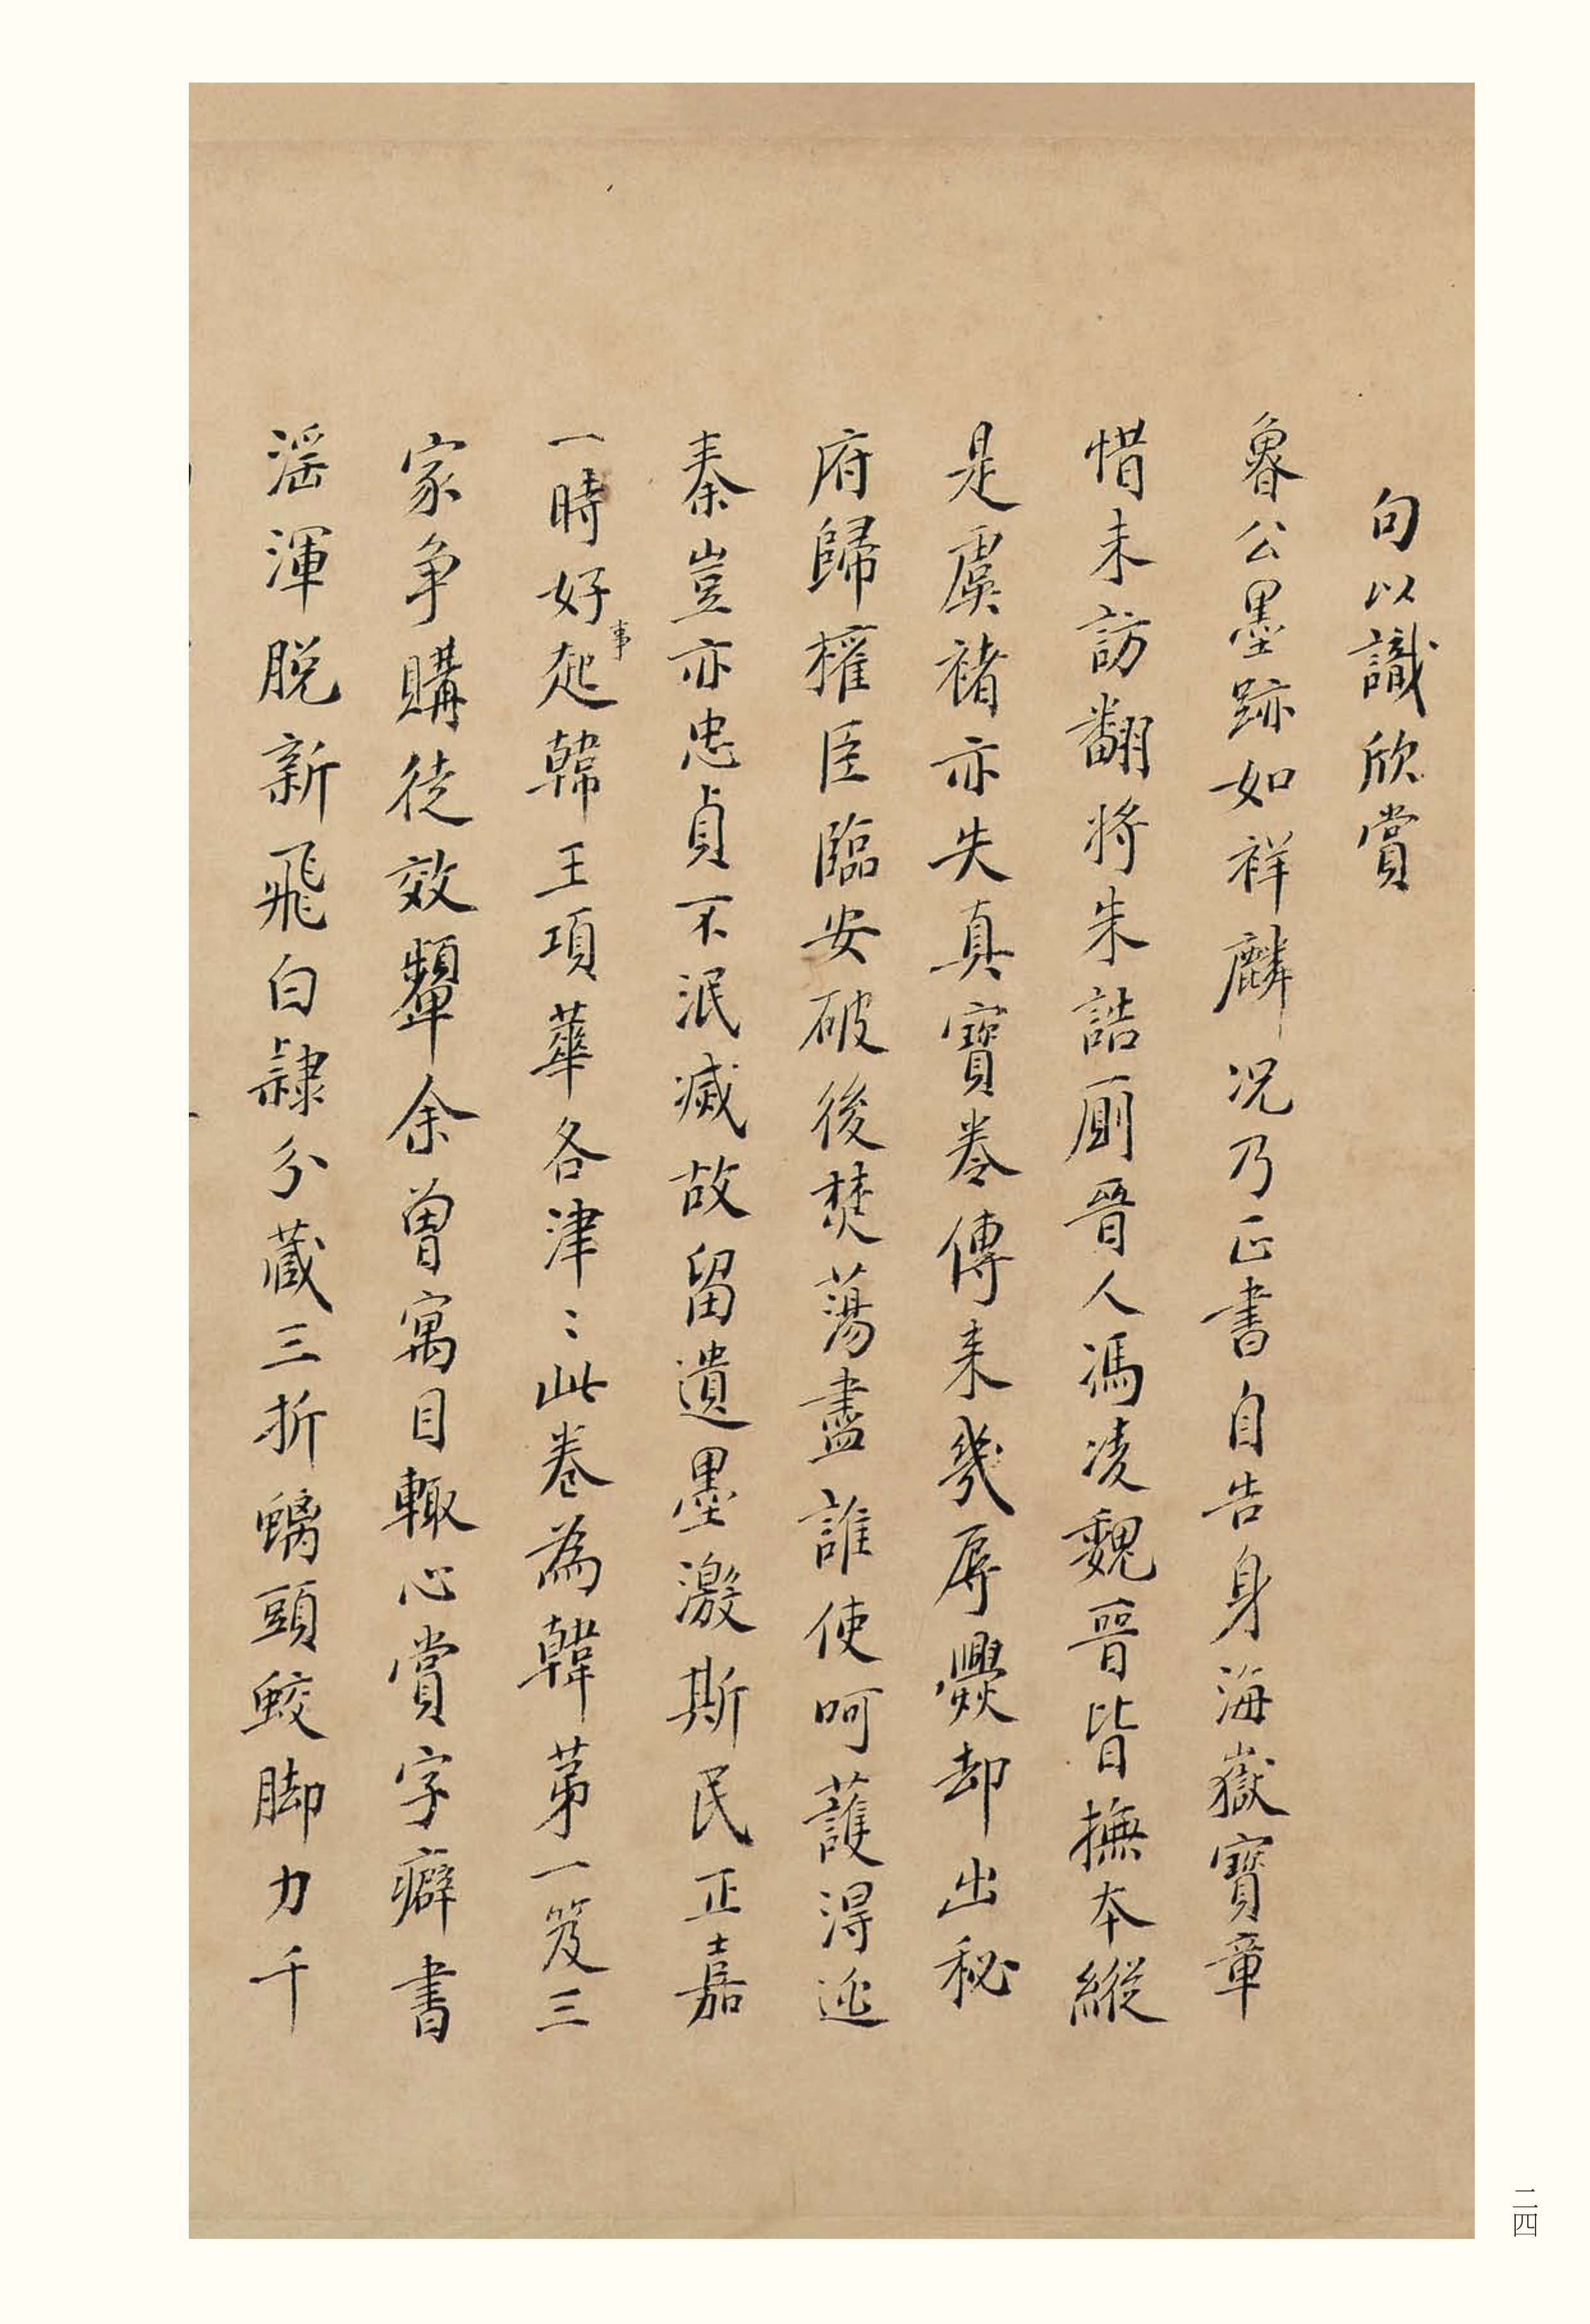 句以識欣賞
魯公墨跡如祥麟况乃正書自告身海嶽寶章
惜未訪翻將朱誥厠晉人馮凌魏晉皆撫本縱
是虞褚亦失真寶卷傳来幾辱爨却出秘
府歸權臣臨安破後焚蕩盡誰使呵護得逃
秦豈亦忠貞不泯滅故留遺墨激斯民正嘉
一時好事起韓王項華各津〻此卷為韓苐一笈三
家争購徒效顰余曾寓目輙心賞字癖書
滛渾脱新飛白隷分蔵三折螭頭蛟脚力千
二四